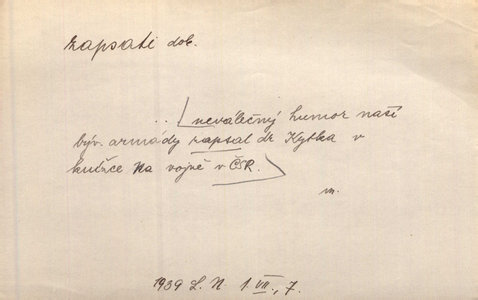 zapsati dok.
.. neválečný humor naší
býv. armády zapsal dr Kytka v
knížce Na vojně v ČSR.
m.
1939 L. N. 1. VII., 7.